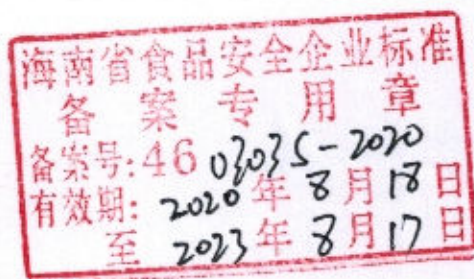 海南省食品安全企业标准
备案专用章
备案号:46 03035-2020
有效期:2020年8月18日
至 2023年8月17日